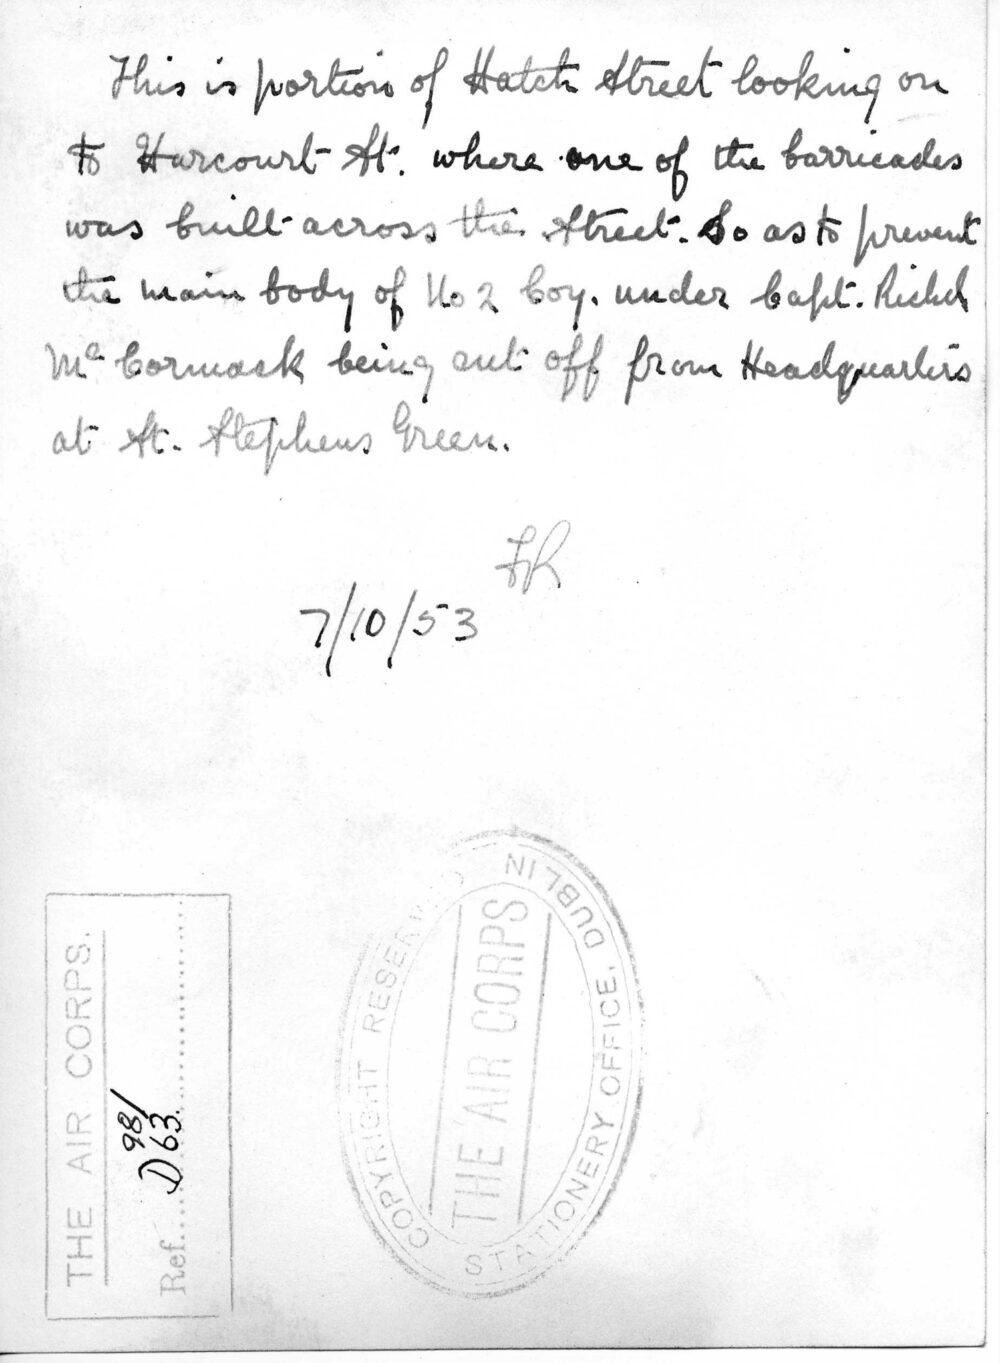 This is portion of Hatch Street looking on
to Harcourt St. where one of the barricades
was built across the Street. So as to prevent
the main body of No 2 Coy. under Capt. Richd
Mc Cormack being cut off from Headquarters
at St. Stephens Green.
7/10/53
THE AIR CORPS.
98/
Ref. D63.
COPYRIGHT RESERVED
THE AIR CORPS
STATIONERY OFFICE, DUBLIN